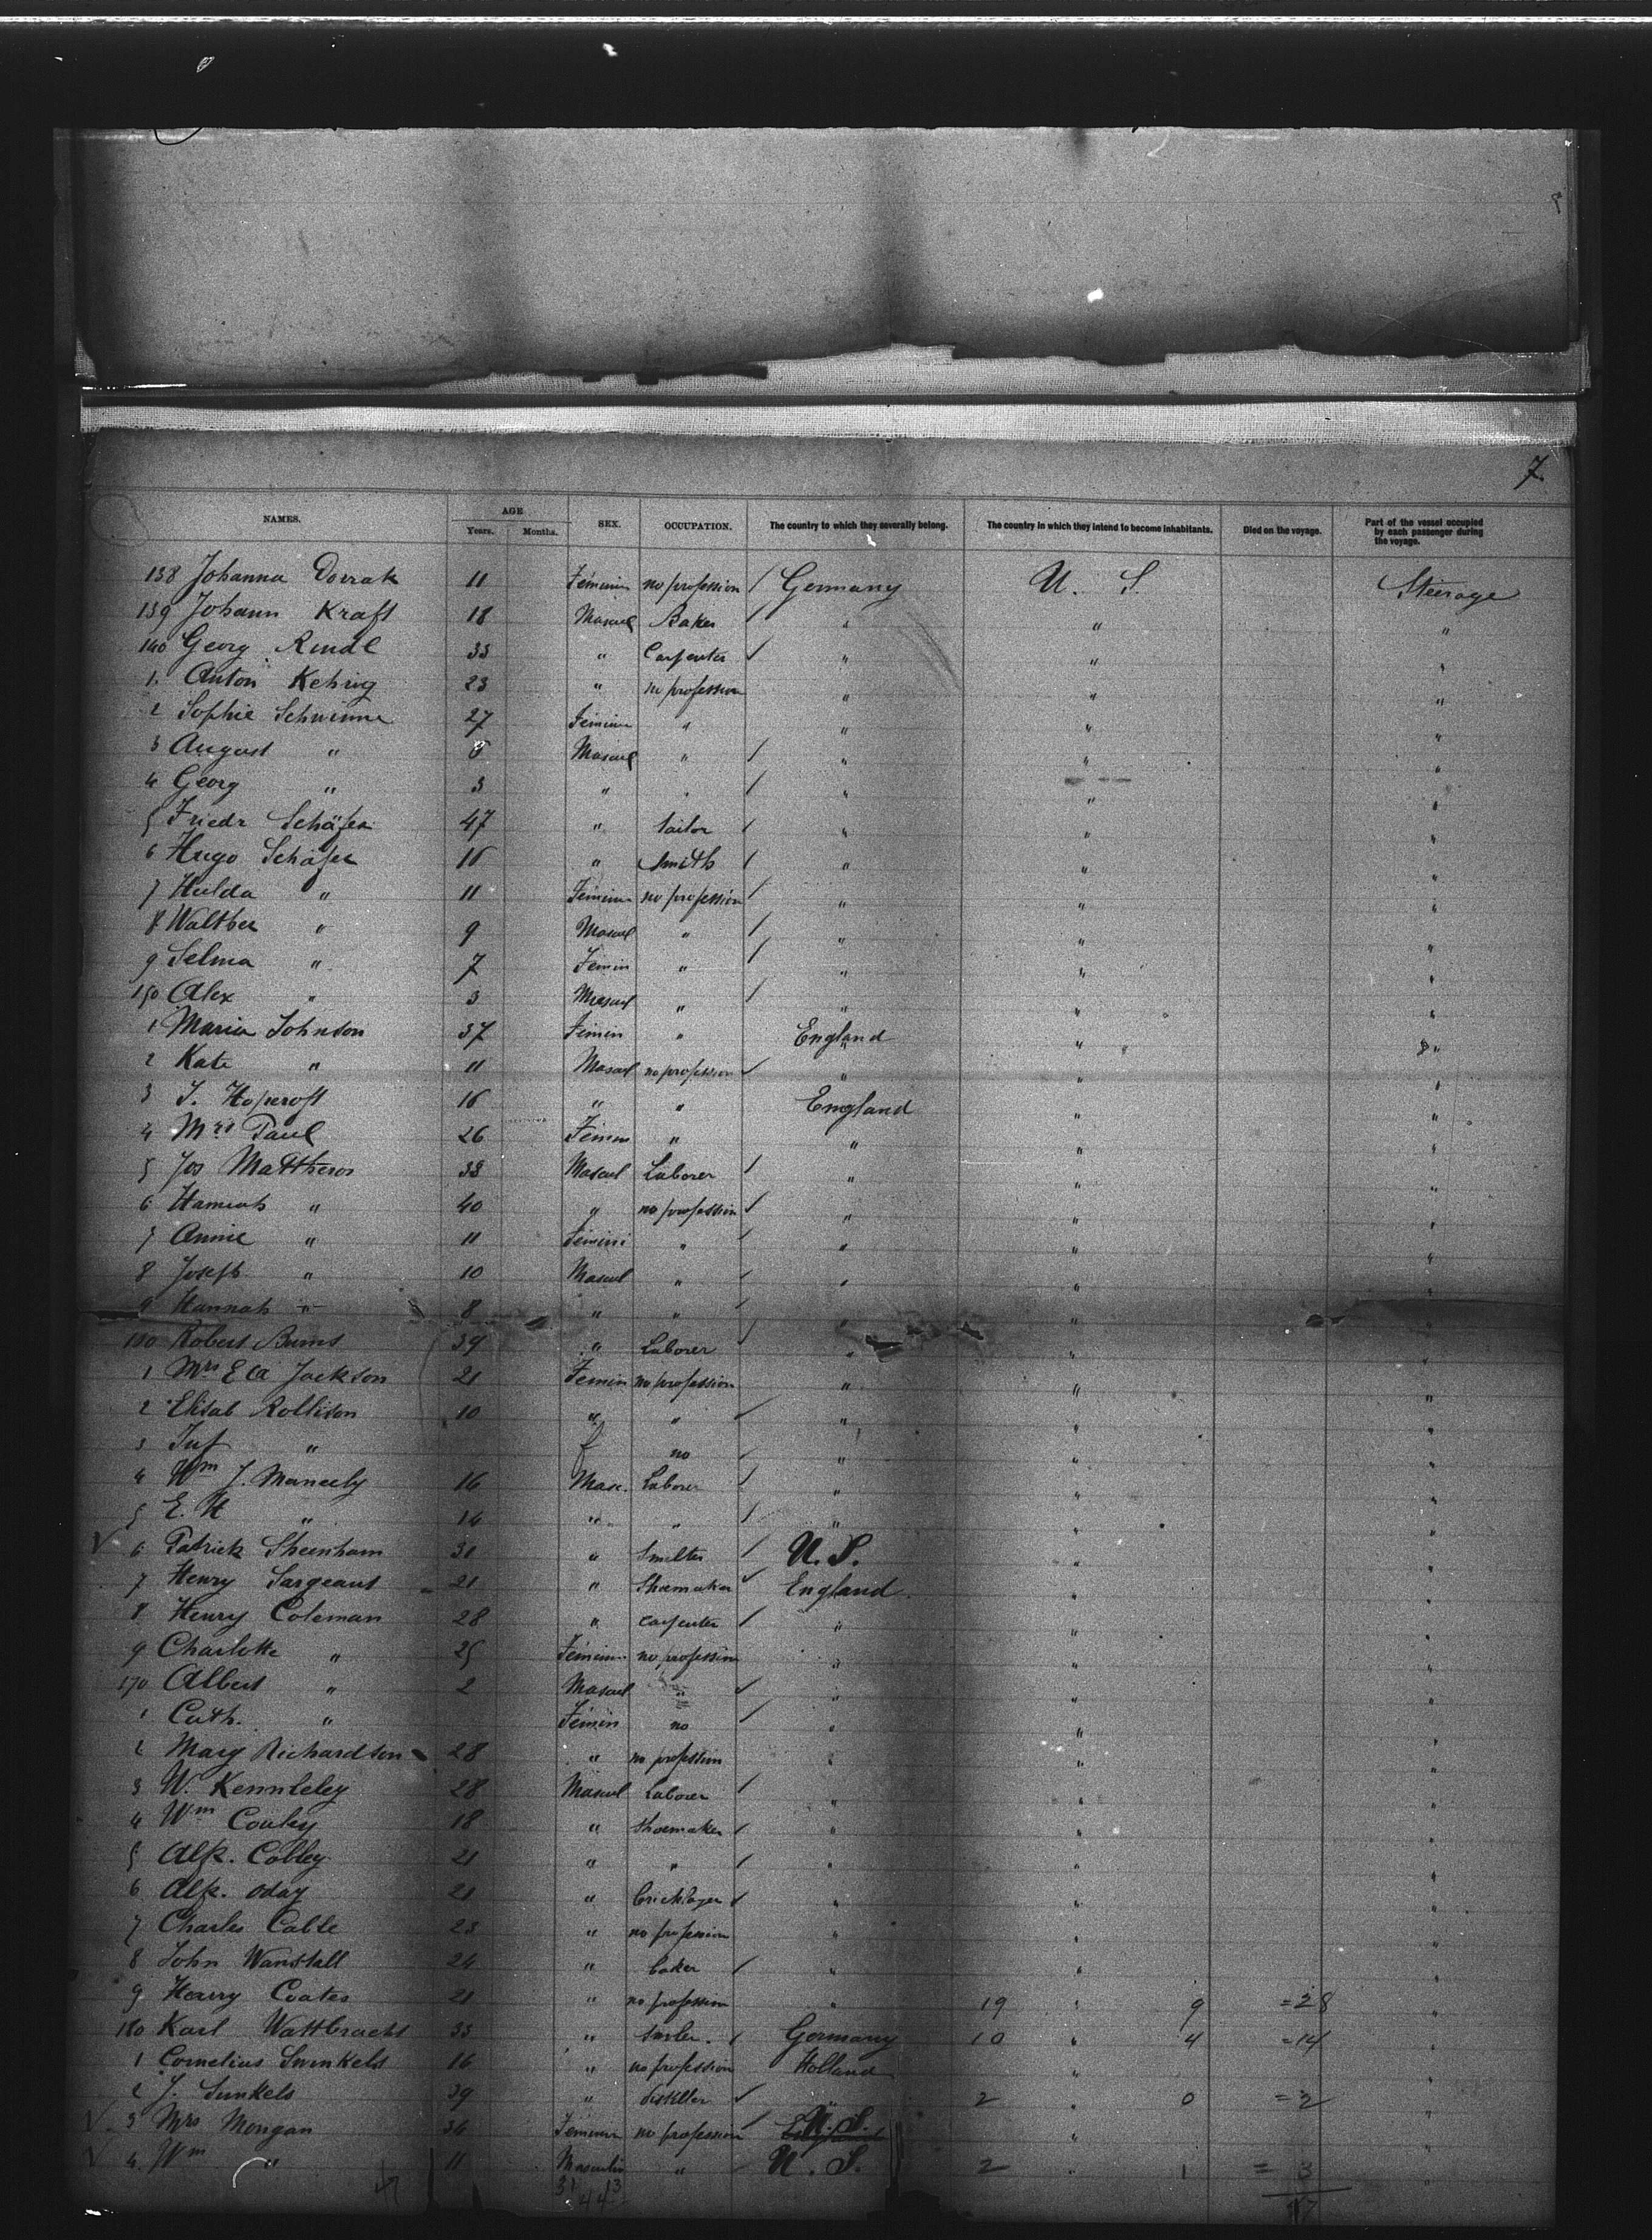 7.
NAMES. AGE Years. Months. SEX. OCCUPATION. The country to which they severally belong. The country in which they intend to become inhabitants. Died on the voyage. Part of the vessel occupied by each passenger during the voyage.
138 Johanna Dorrak 11 Feminin no profession / Germany U. S. Steerage
139 Johann Kraft 18 Mascul Baker / " " "
140 Georg Rindl 33 " Carpenter / " " "
1. Anton Kehrig 23 " no profession " " "
2 Sophie Schwinne 27 Feminin " " " "
3 August " Mascul " / " " "
4 Georg " 3 " " / " " "
5 Friedr Schäfer 47 " tailor / " " "
6 Hugo Schäfer 16 " Smith / " " "
7 Hulda " 11 Feminin no profession / " " "
8 Walther " 9 Mascul " / " " "
9 Selma " 7 Femin " / " " "
150 Alex " 3 Mascul " / " " "
1 Maria Johnson 37 Femin " England " "
2 Kate " 11 Mascul no profession / " " "
3 Hopcroft 16 " " England " "
4 Mrs Paul 26 Femin " " " "
5 Jos Matthews 38 Mascul Laborer / " " "
6 Hannah " 40 " no profession / " " "
7 Annie " 11 Femini " / " " "
8 Joseph " 10 Mascul " / " " "
9 Hannah " 8 " " / " " "
160 Robert Burns 39 " Laborer / " " "
1 Mrs E A Jackson 21 Femin no profession " " "
2 Elisab Rollison 10 " " / " " "
3 Inf " f no / " " "
4 Wm J. Maneely 16 Masc. Laborer / " " "
5 E. H " 14 " " / " " "
6 Patrick Sheenham 30 " Smelter / U. S. " "
7 Henry Sargeant 21 " Shoemaker / England " "
8 Henry Coleman 28 " carpenter / " " "
9 Charlotte " 25 Feminin no profession " " "
170 Albert " 2 Mascul " / " " "
1 Cath. " Femin no / " " "
2 Mary Richardson 28 " no profession " " "
3 W. Kennleley 28 Mascul Laborer / " " "
4 Wm Couley 18 " Shoemaker / " " "
5 Alf. Colley 21 " " / " " "
6 Alf. Oday 21 " bricklayer / " " "
7 Charles Cable 23 " no profession " " "
8 John Wanstall 24 " baker / " " "
9 Harry Coates 21 " no profession " 19 " 9 =28 "
180 Karl Wattbracht 33 " / Germany 10 " 4 =14 "
1 Cornelius Swinkels 16 " no profession Holland " "
2 J. Sunkels 39 " distiller / " 2 " 0 =2 "
3 Mrs Mongan 36 Feminin no profession / U. S. " "
4. Wm " 11 Masculin " U. S. 2 " 1 = 3 "
31 13
44